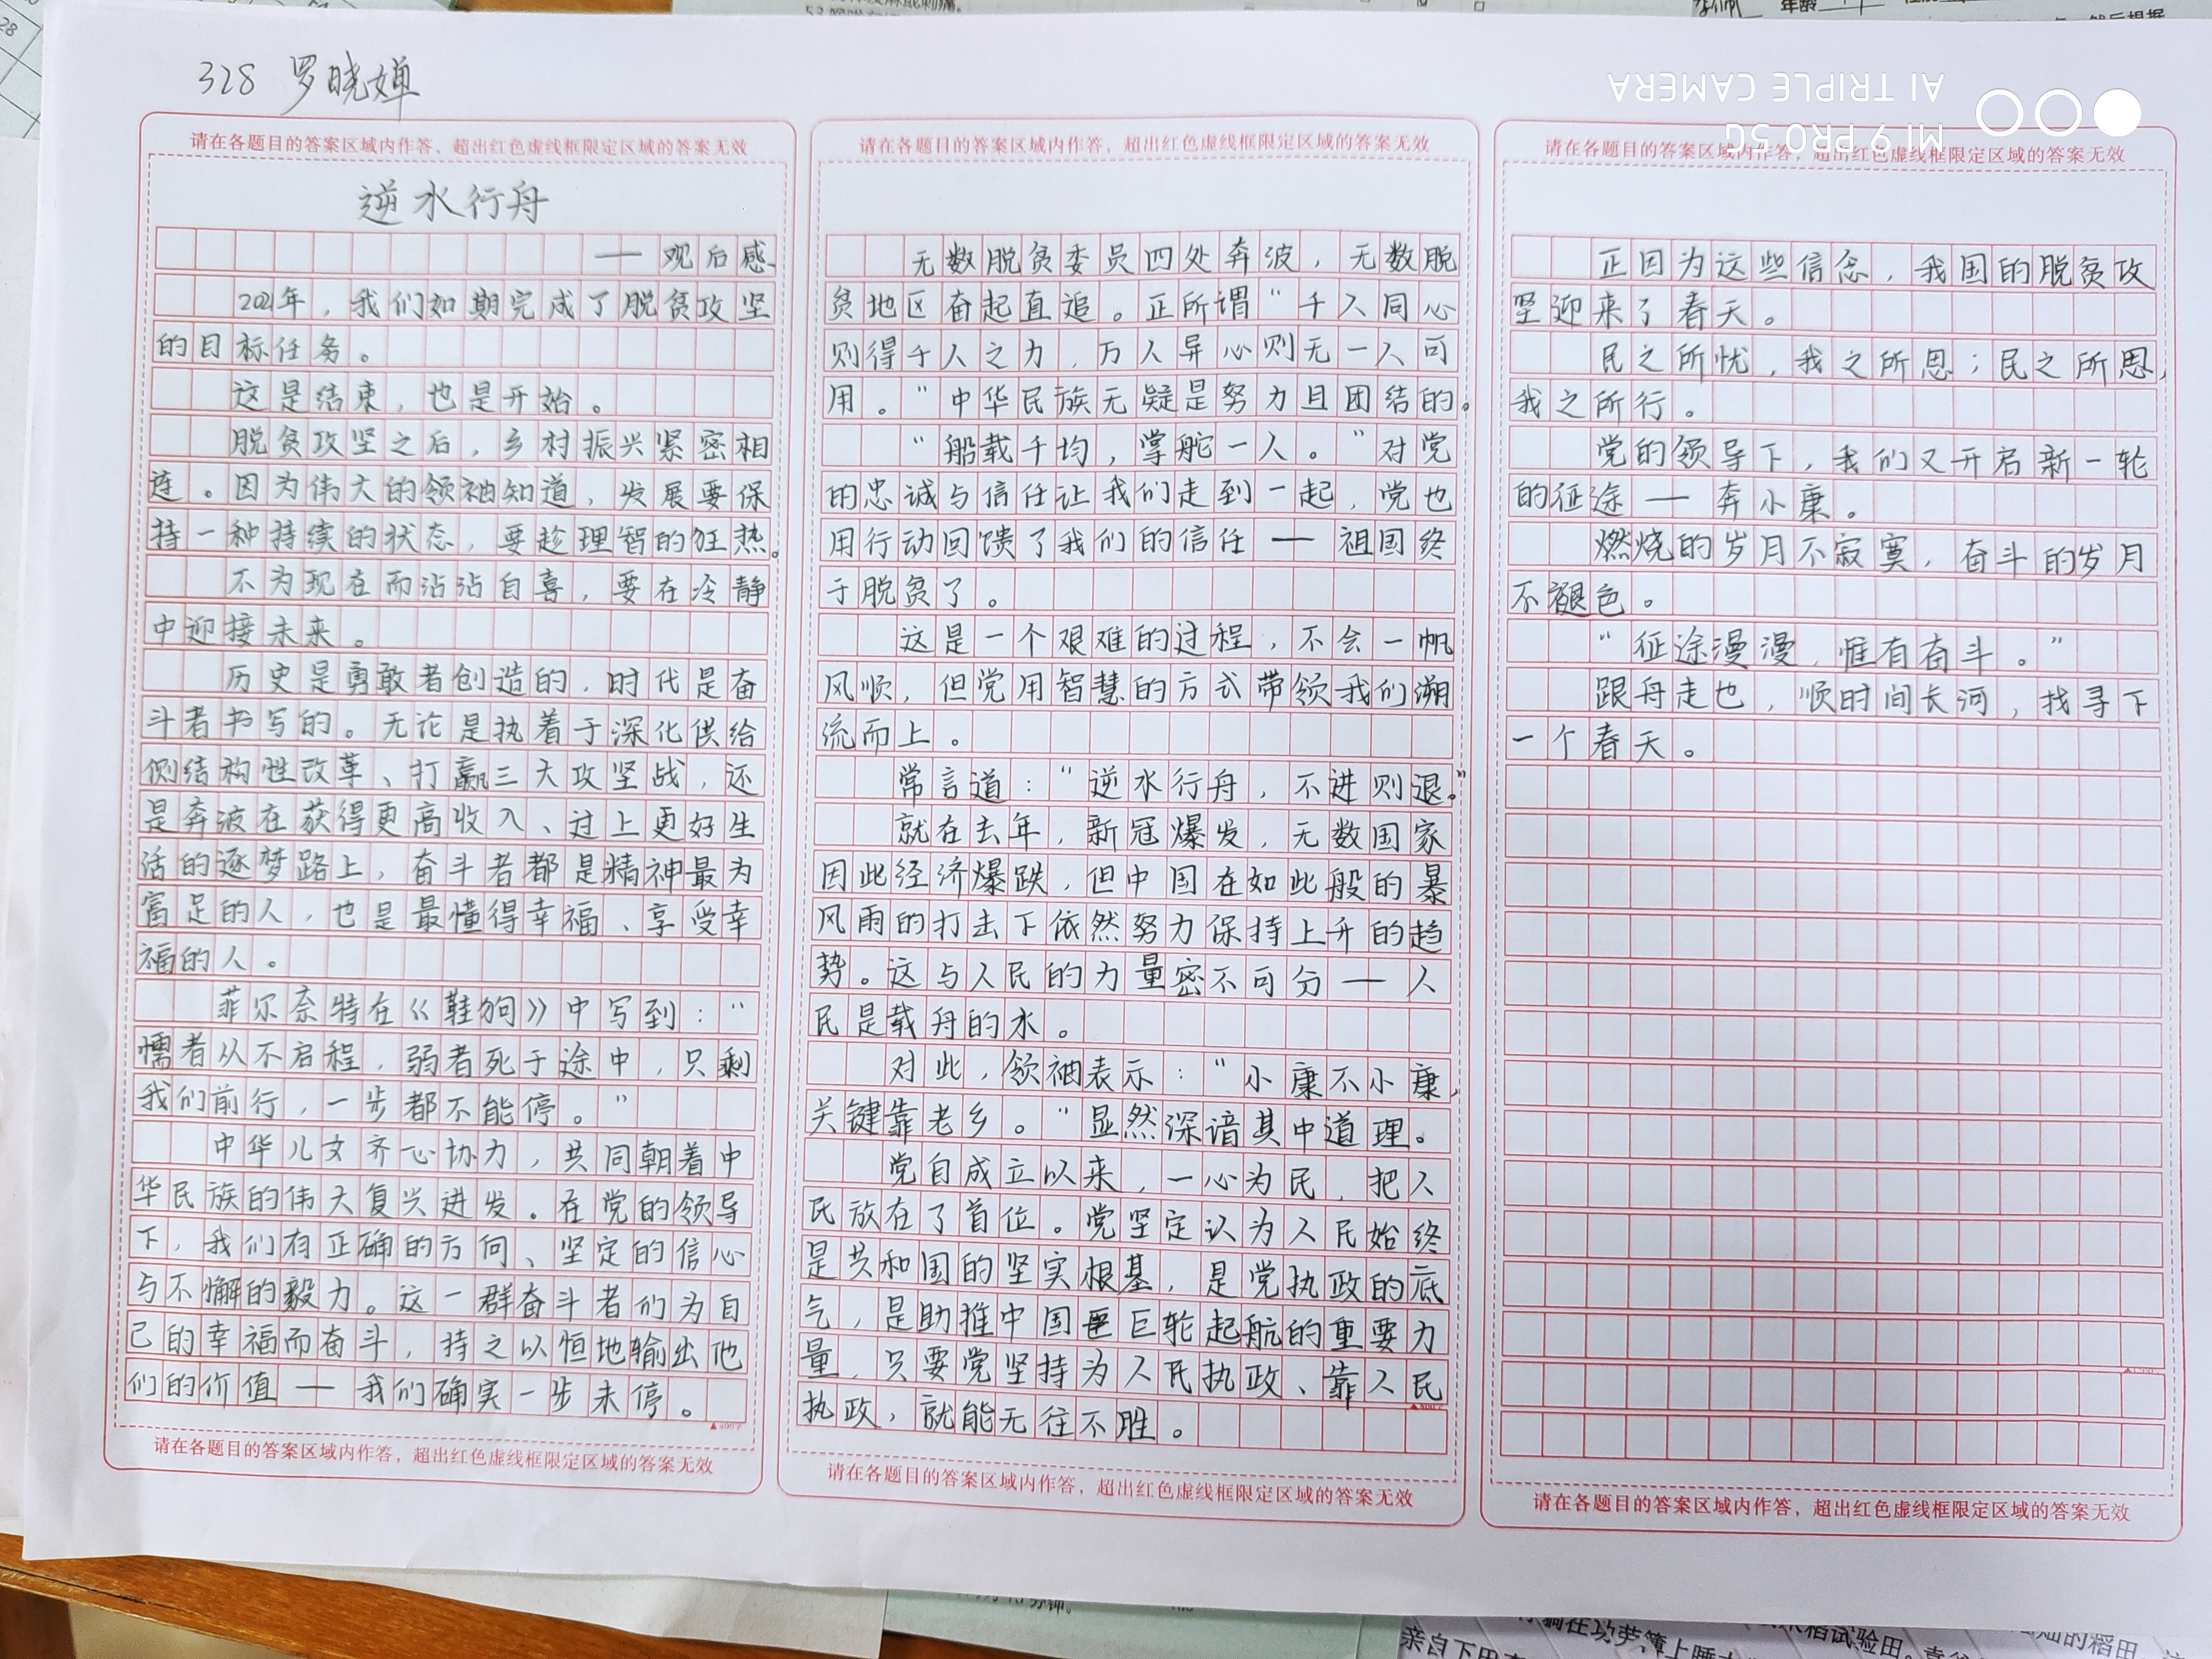 328 罗晓婵
请在各题目的答案区域内作答、超出红色虚线框限定区域的答案无效
逆水行舟
—— 观后感
2021年，我们如期完成了脱贫攻坚
的目标任务。
这是结束，也是开始。
脱贫攻坚之后，乡村振兴紧密相
连。因为伟大的领袖知道，发展要保
持一种持续的状态，要趁理智的狂热。
不为现在而沾沾自喜，要在冷静
中迎接未来。
历史是勇敢者创造的，时代是奋
斗者书写的。无论是执着于深化供给
侧结构性改革、打赢三大攻坚战，还
是奔波在获得更高收入、过上更好生
活的逐梦路上，奋斗者都是精神最为
富足的人，也是最懂得幸福、享受幸
福的人。
菲尔奈特在《鞋狗》中写到："
懦者从不启程，弱者死于途中，只剩
我们前行，一步都不能停。"
中华儿女齐心协力，共同朝着中
华民族的伟大复兴进发。在党的领导
下，我们有正确的方向、坚定的信心
与不懈的毅力。这一群奋斗者们为自
己的幸福而奋斗，持之以恒地输出他
们的价值——我们确实一步未停。
请在各题目的答案区域内作答，超出红色虚线框限定区域的答案无效
请在各题目的答案区域内作答，超出红色虚线框限定区域的答案无效
无数脱贫委员四处奔波，无数脱
贫地区奋起直追。正所谓"千人同心
则得千人之力，万人异心则无一人可
用。"中华民族无疑是努力且团结的。
"船载千均，掌舵一人。"对党
的忠诚与信任让我们走到一起，党也
用行动回馈了我们的信任——祖国终
于脱贫了。
这是一个艰难的过程，不会一帆
风顺，但党用智慧的方式带领我们溯
流而上。
常言道："逆水行舟，不进则退。"
就在去年，新冠爆发，无数国家
因此经济爆跌，但中国在如此般的暴
风雨的打击下依然努力保持上升的趋
势。这与人民的力量密不可分——人
民是载舟的水。
对此，领袖表示："小康不小康，
关键靠老乡。"显然深谙其中道理。
党自成立以来，一心为民，把人
民放在了首位。党坚定认为人民始终
是共和国的坚实根基，是党执政的底
气，是助推中国巨轮起航的重要力
量，只要党坚持为人民执政、靠人民
执政，就能无往不胜。
请在各题目的答案区域内作答，超出红色虚线框限定区域的答案无效
请在各题目的答案区域内作答，超出红色虚线框限定区域的答案无效
正因为这些信念，我国的脱贫攻
坚迎来了春天。
民之所忧，我之所思；民之所思，
我之所行。
党的领导下，我们又开启新一轮
的征途——奔小康。
燃烧的岁月不寂寞，奋斗的岁月
不褪色。
"征途漫漫，惟有奋斗。"
跟舟走也，顺时间长河，找寻下
一个春天。
请在各题目的答案区域内作答，超出红色虚线框限定区域的答案无效
MI 9 PRO 5G
AI TRIPLE CAMERA